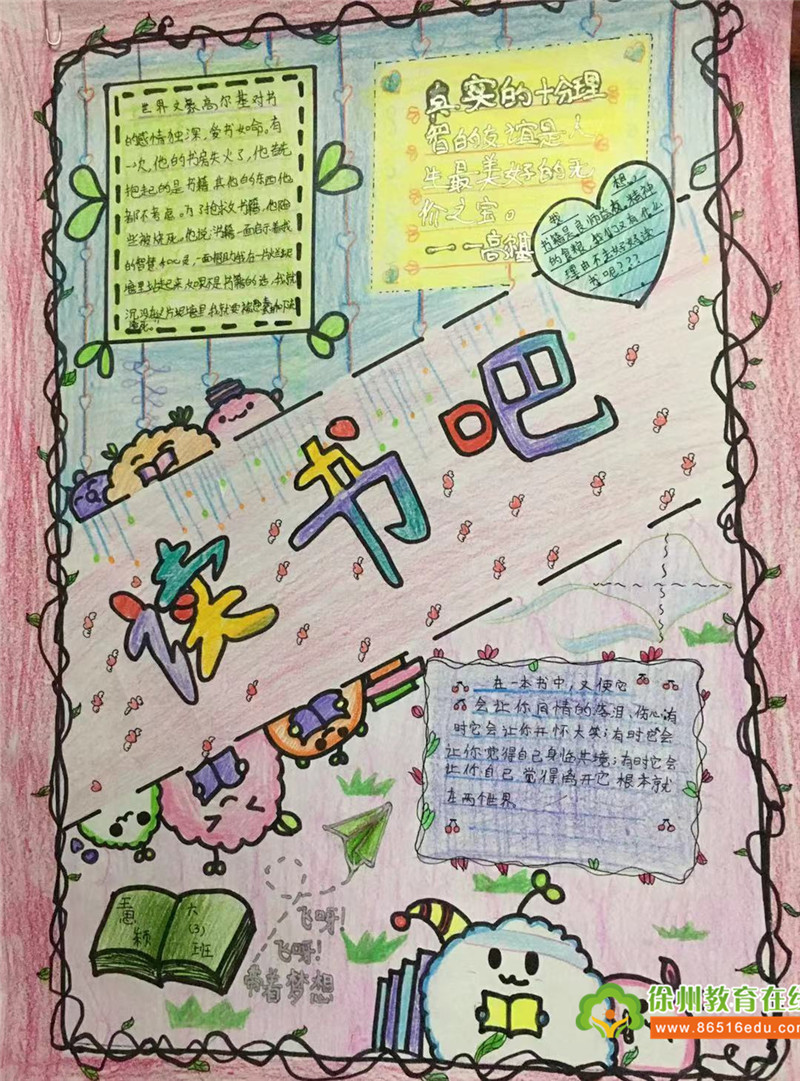 世界文豪高尔基对书
的感情独深，爱书如命。有
一次，他的书房失火了，他首先
抱起的是书籍，其他的东西他
都不考虑。为了抢救书籍，他险
些被烧死。他说：书籍一面启示着我
的智慧和心灵，一面帮助我在一片烂泥
塘里站起来，如果不是书籍的话，我就
沉没在这片泥塘里，我就要被愚蠢和下流
淹死。
真实的十分理
智的友谊是人
生最美好的无
价之宝。
——高尔基
我想：
书籍是良师益友，精神
的食粮，我们又有什么
理由不去好好读
书呢？？？
读书吧
在一本书中，又使它
会让你同情的落泪、伤心；有
时它会让你开怀大笑；有时它会
让你觉得自己身临其境；有时它会
让你自己觉得离开它根本就
在两个世界
飞呀！
飞呀！
带着梦想
王思颖
六(3)班
徐州教育在线
www.86516edu.com